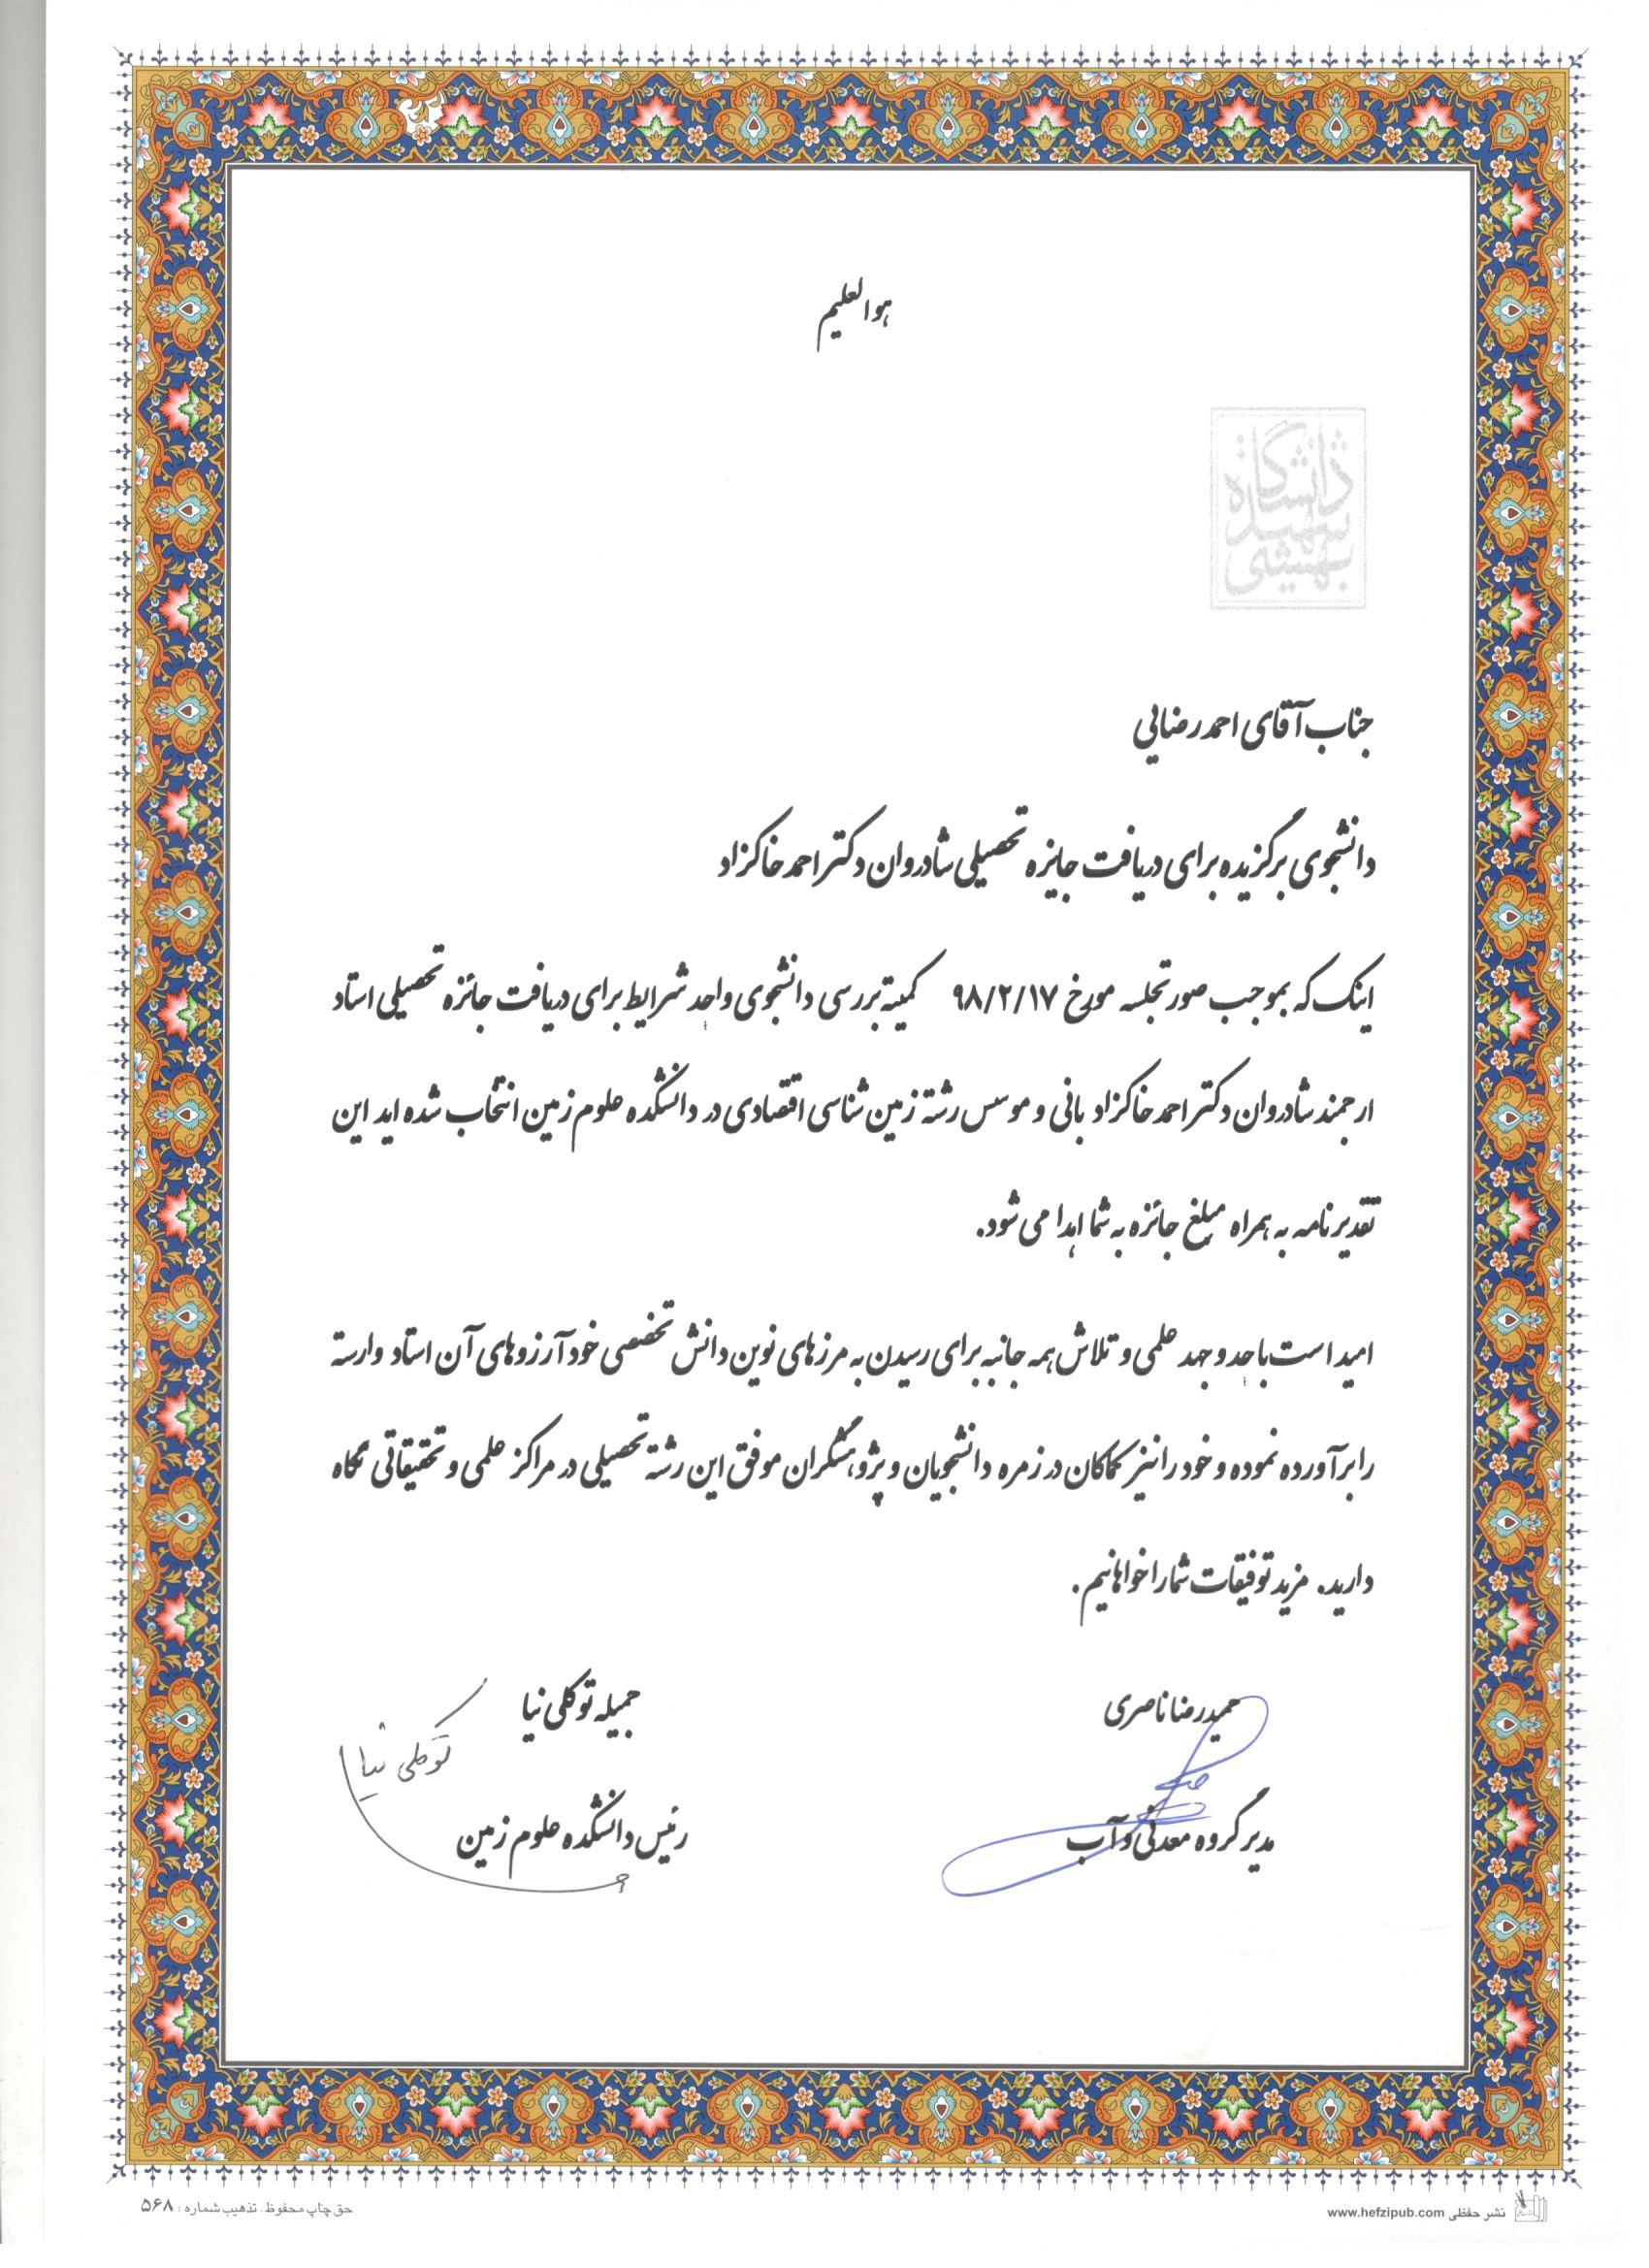 هوالعلیم
دانشگاه
شهید
بهشتی
جناب آقای احمد رضایی
دانشجوی برگزیده برای دریافت جایزه تحصیلی شادروان دکتر احمد خاکزاد
اینک که بموجب صورتجلسه مورخ ۹۸/۲/۱۷ کمیته بررسی دانشجوی واجد شرایط برای دریافت جائزه تحصیلی استاد
ارجمند شادروان دکتر احمد خاکزاد بانی و موسس رشته زمین شناسی اقتصادی در دانشکده علوم زمین انتخاب شده اید این
تقدیرنامه به همراه مبلغ جائزه به شما اهدا می شود.
امید است با جد و جهد علمی و تلاش همه جانبه برای رسیدن به مرزهای نوین دانش تخصصی خود آرزوهای آن استاد وارسته
را برآورده نموده و خود را نیز کماکان در زمره دانشجویان و پژوهشگران موفق این رشته تحصیلی در مراکز علمی و تحقیقاتی نگاه
دارید. مزید توفیقات شما را خواهانیم.
حمیدرضا ناصری
جمیله توکلی نیا
توکلی نیا
مدیر گروه معدنی و آب
رئیس دانشکده علوم زمین
نشر حفظی www.hefzipub.com
حق چاپ محفوظ. تذهیب شماره : ۵۶۸